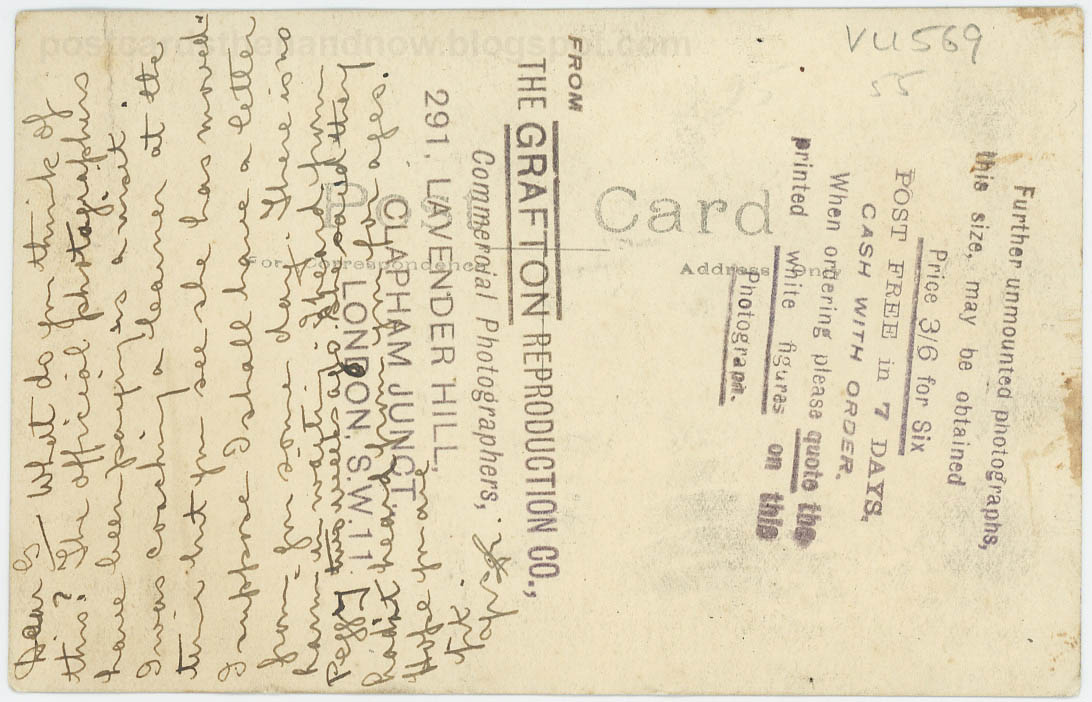 postcardsthenandnow.blogspot.com
VU 569
55
Post Card
For Correspondence
Address Only
FROM
THE GRAFTON REPRODUCTION CO.,
Commercial Photographers,
291, LAVENDER HILL,
CLAPHAM JUNCT.,
LONDON, S.W.11
Further unmounted photographs,
this size, may be obtained
Price 3/6 for Six
POST FREE in 7 DAYS.
CASH WITH ORDER.
When ordering please quote the
printed white figures on this
Photograph.
Dear G What do you think of
this? The official photographers
have been paying us a visit.
I was coaching a learner at the
time but you see she has moved.
I suppose I shall have a letter
from you some day. There is no
harm in waiting. Heard from
Peggy two weeks ago she said they
hadn't heard from you for ages.
Hope you are